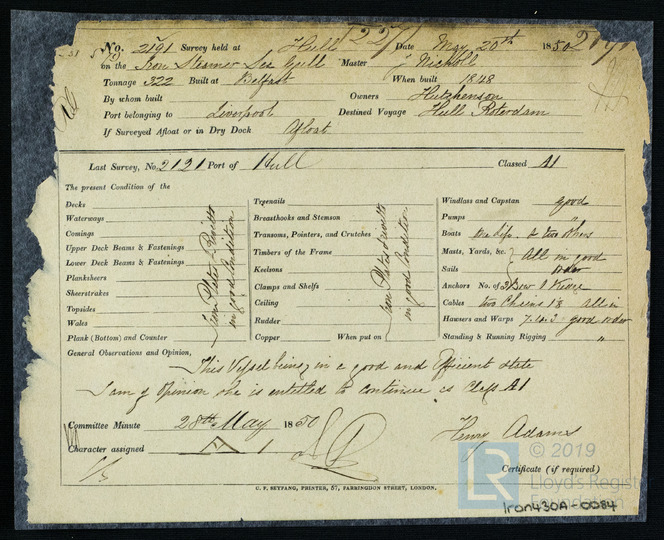 No. 2191 Survey held at Hull Date May 20th 1850
on the Iron Steamer Sea Gull Master J Nicholl
Tonnage 322 Built at Belfast When built 1848
By whom built Owners Hutchenson
Port belonging to Liverpool Destined Voyage Hull Roterdam
If Surveyed Afloat or in Dry Dock Afloat
Last Survey, No. 2121 Port of Hull Classed A1
The present Condition of the
Decks
Waterways
Comings
Upper Deck Beams & Fastenings
Lower Deck Beams & Fastenings
Planksheers
Sheerstrakes
Topsides
Wales
Plank (Bottom) and Counter
Iron Plates & Rivetts
in good Condition
Treenails
Breasthooks and Stemson
Transoms, Pointers, and Crutches
Timbers of the Frame
Keelsons
Clamps and Shelfs
Ceiling
Rudder
Copper When put on
Iron Plates & Rivetts
in good Condition
Windlass and Capstan good
Pumps "
Boats one life & two others
Masts, Yards, &c. All in good
Sails order
Anchors No. 3 Bower 1 Kedge
Cables two Chains 1 1/8 all in
Hawsers and Warps good order
Standing & Running Rigging "
General Observations and Opinion,
This Vessel being in a good and efficient state
I am of opinion she is entitled to continue as Class A1
Committee Minute 28th May 1850
Character assigned A 1
Henry Adams
Certificate (if required)
C. F. SEYFANG, PRINTER, 57, FARRINGDON STREET, LONDON.
LR
© 2019
Lloyd's Register
Foundation
Iron430A-0084